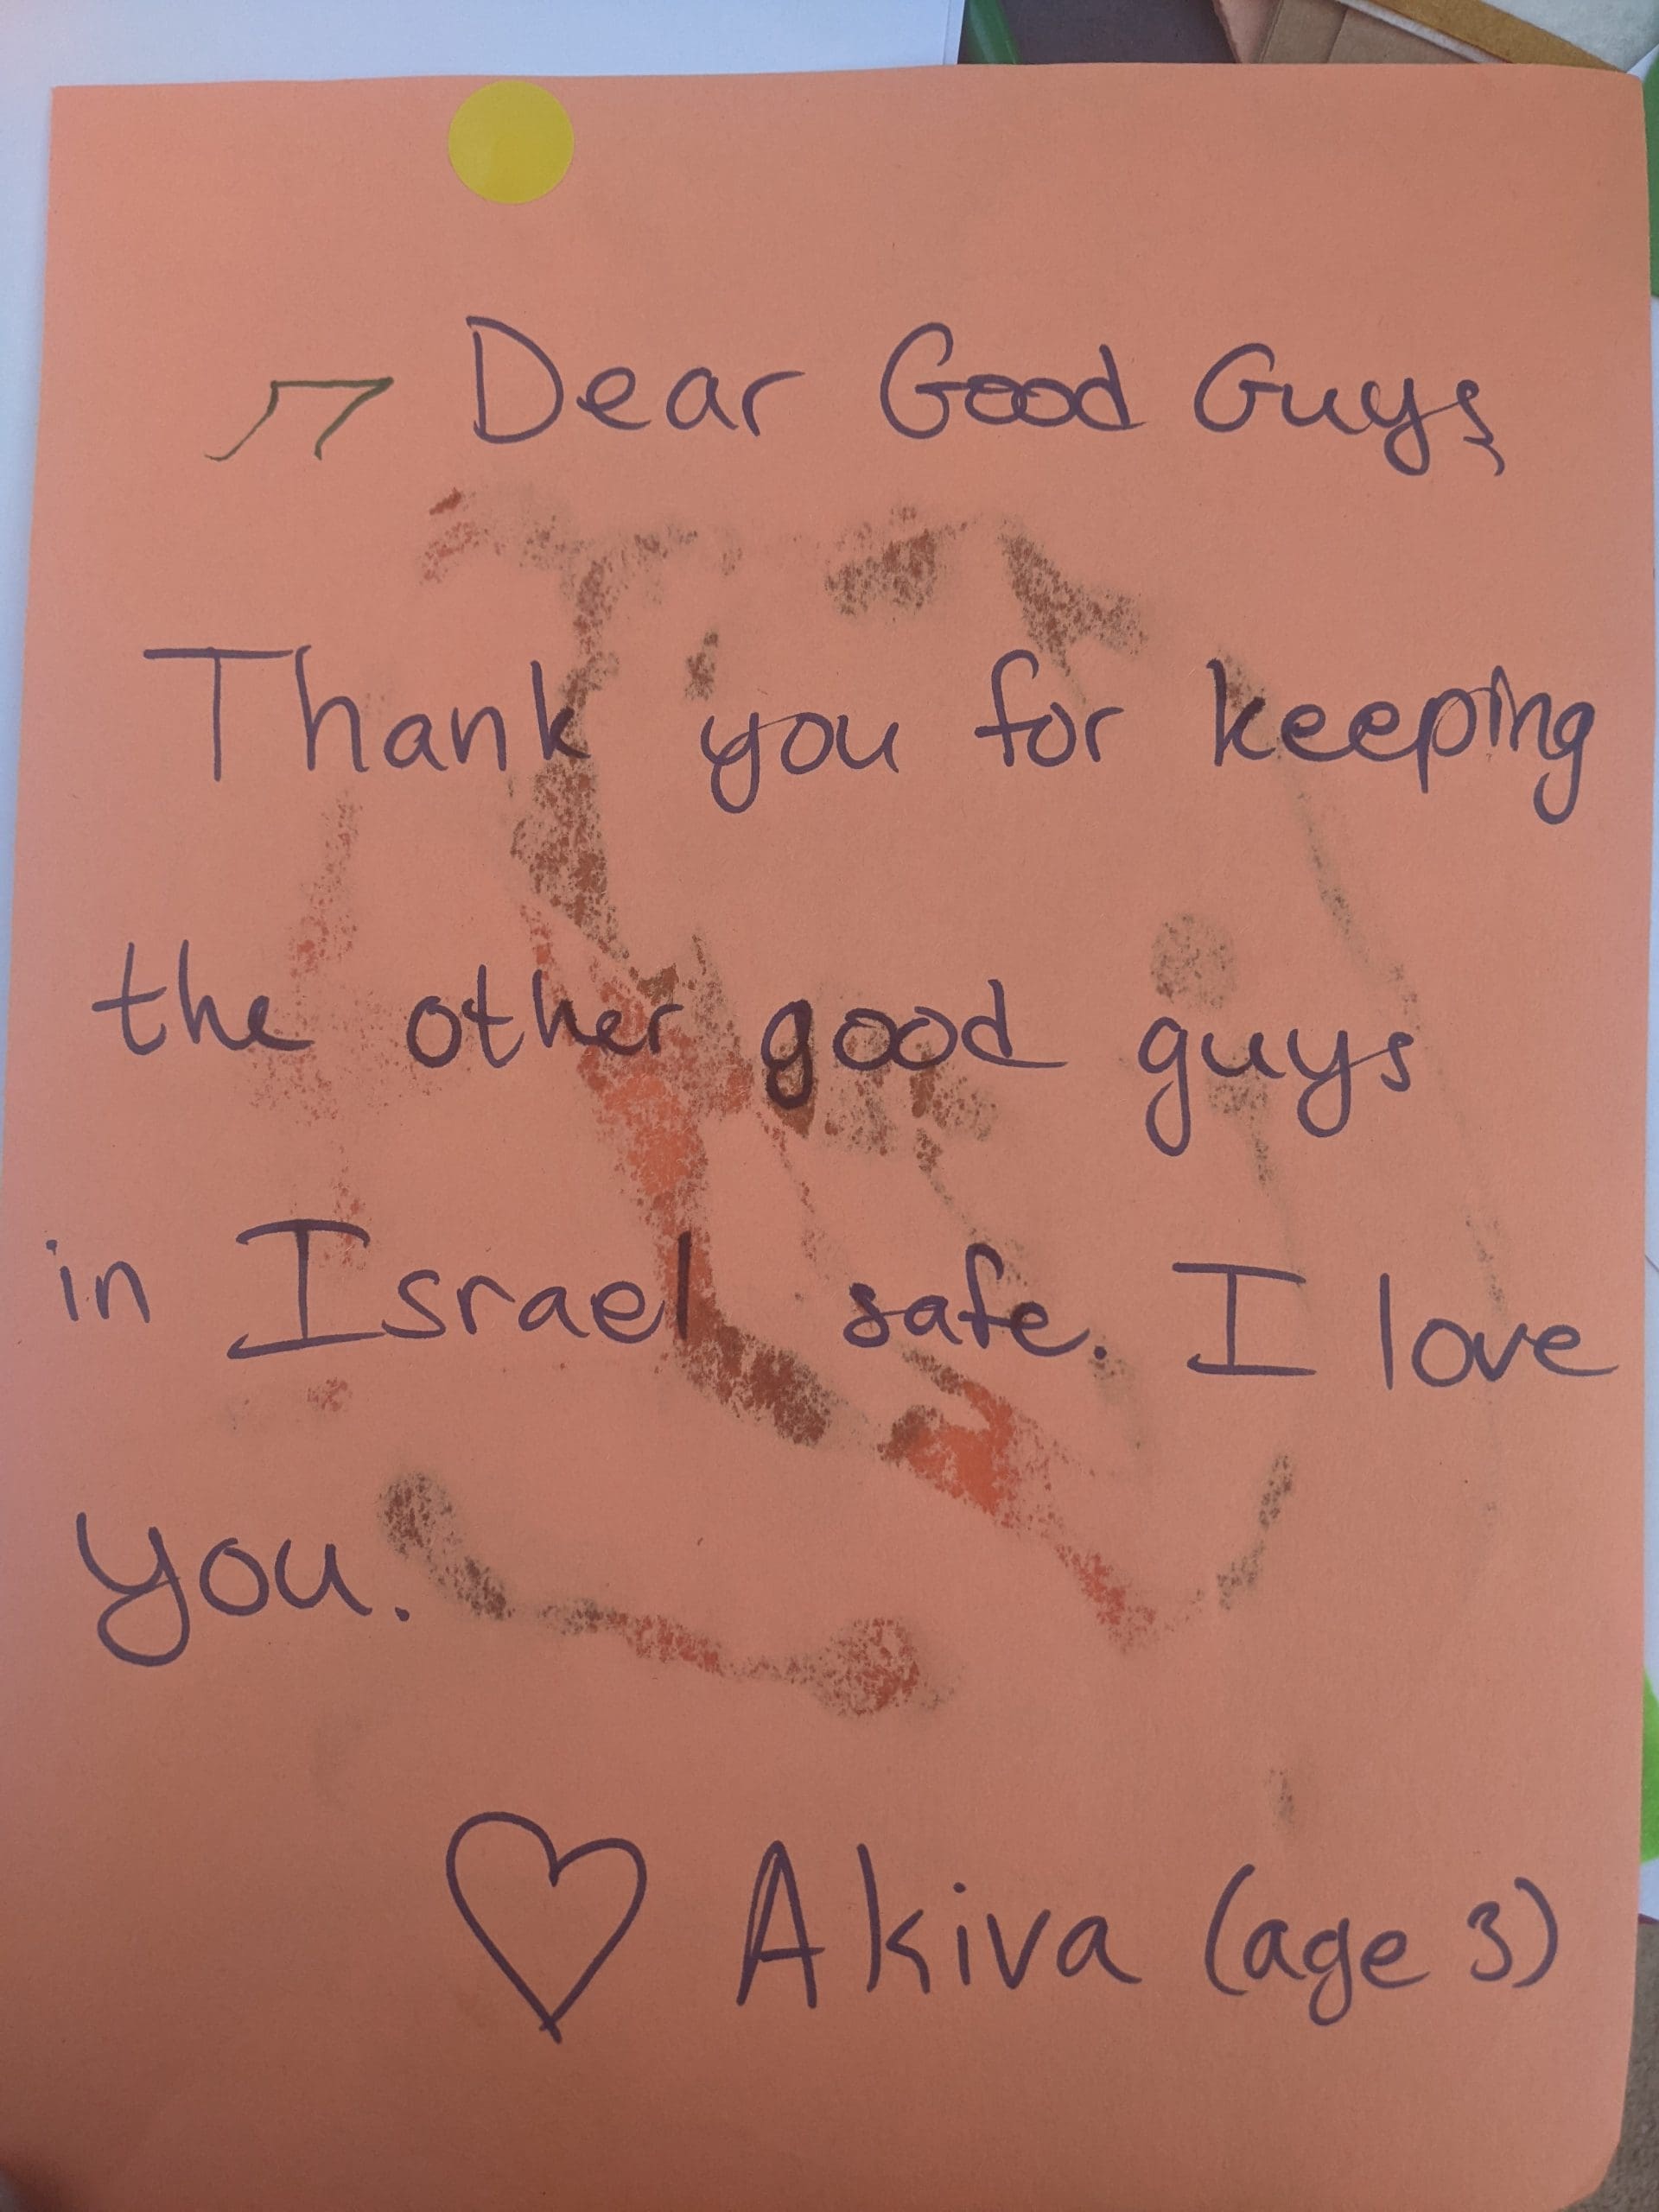 Dear Good Guys,
Thank you for keeping
the other good guys
in Israel safe. I love
you.
♡ Akiva (age 3)